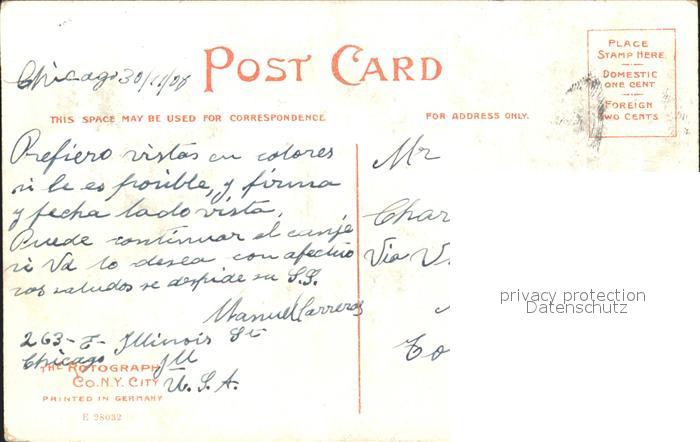 Chicago 30/11/08
POST CARD
PLACE
STAMP HERE
DOMESTIC
ONE CENT
FOREIGN
TWO CENTS
THIS SPACE MAY BE USED FOR CORRESPONDENCE
FOR ADDRESS ONLY.
Prefiero vistas en colores
si le es posible, y firma
y fecha lado vista.
Puede continuar el canje
si Vd lo desea con afectuo
sos saludos se despide su S.S.
Manuel Carreras
263-E- Illinois St
Chicago Ill
U.S.A.
Mr
Char
Via V.
To
privacy protection
Datenschutz
THE ROTOGRAPH
CO. N.Y. CITY
PRINTED IN GERMANY
E 28032